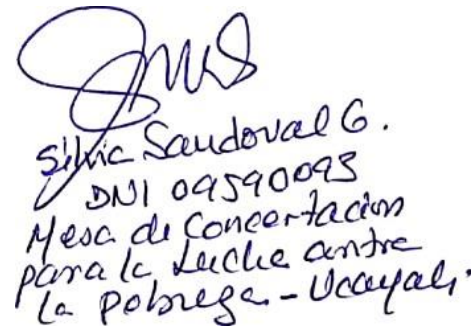 Silvia Sandoval G.
DNI 09590093
Mesa de Concertacion
para la Lucha contra
la Pobreza - Ucayali.